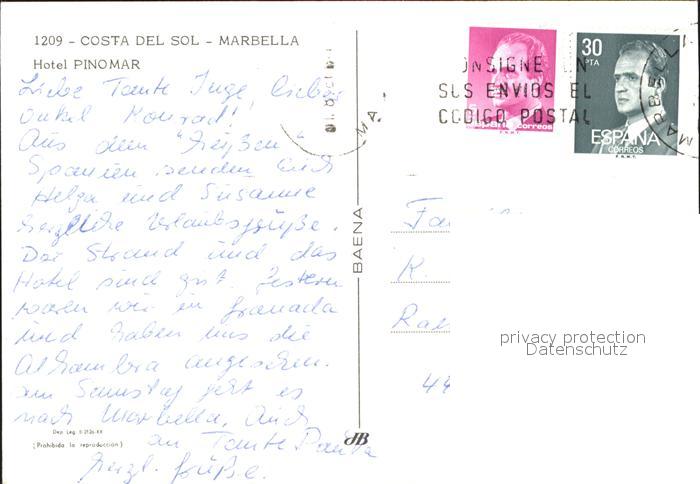 1209 - COSTA DEL SOL - MARBELLA
Hotel PINOMAR
Liebe Tante Inge, lieber
Onkel Konrad!
Aus dem "heißen"
Spanien senden Euch
Helga und Susanne
herzliche Urlaubsgrüße.
Der Strand und das
Hotel sind gut. Gestern
waren wir in Granada
und haben uns die
Alhambra angesehen.
Am Samstag geht es
nach Marbella. Auch
an Tante Paula
herzl. Grüße.
Dep. Leg. B 2126-XX
(Prohibida la reproducción)
BAENA
dB
CONSIGNE EN
SUS ENVIOS EL
CODIGO POSTAL
MARBELLA
5
correos
30
PTA
ESPAÑA
CORREOS
F.N.M.T.
Fa
K.
Ra
44
privacy protection
Datenschutz